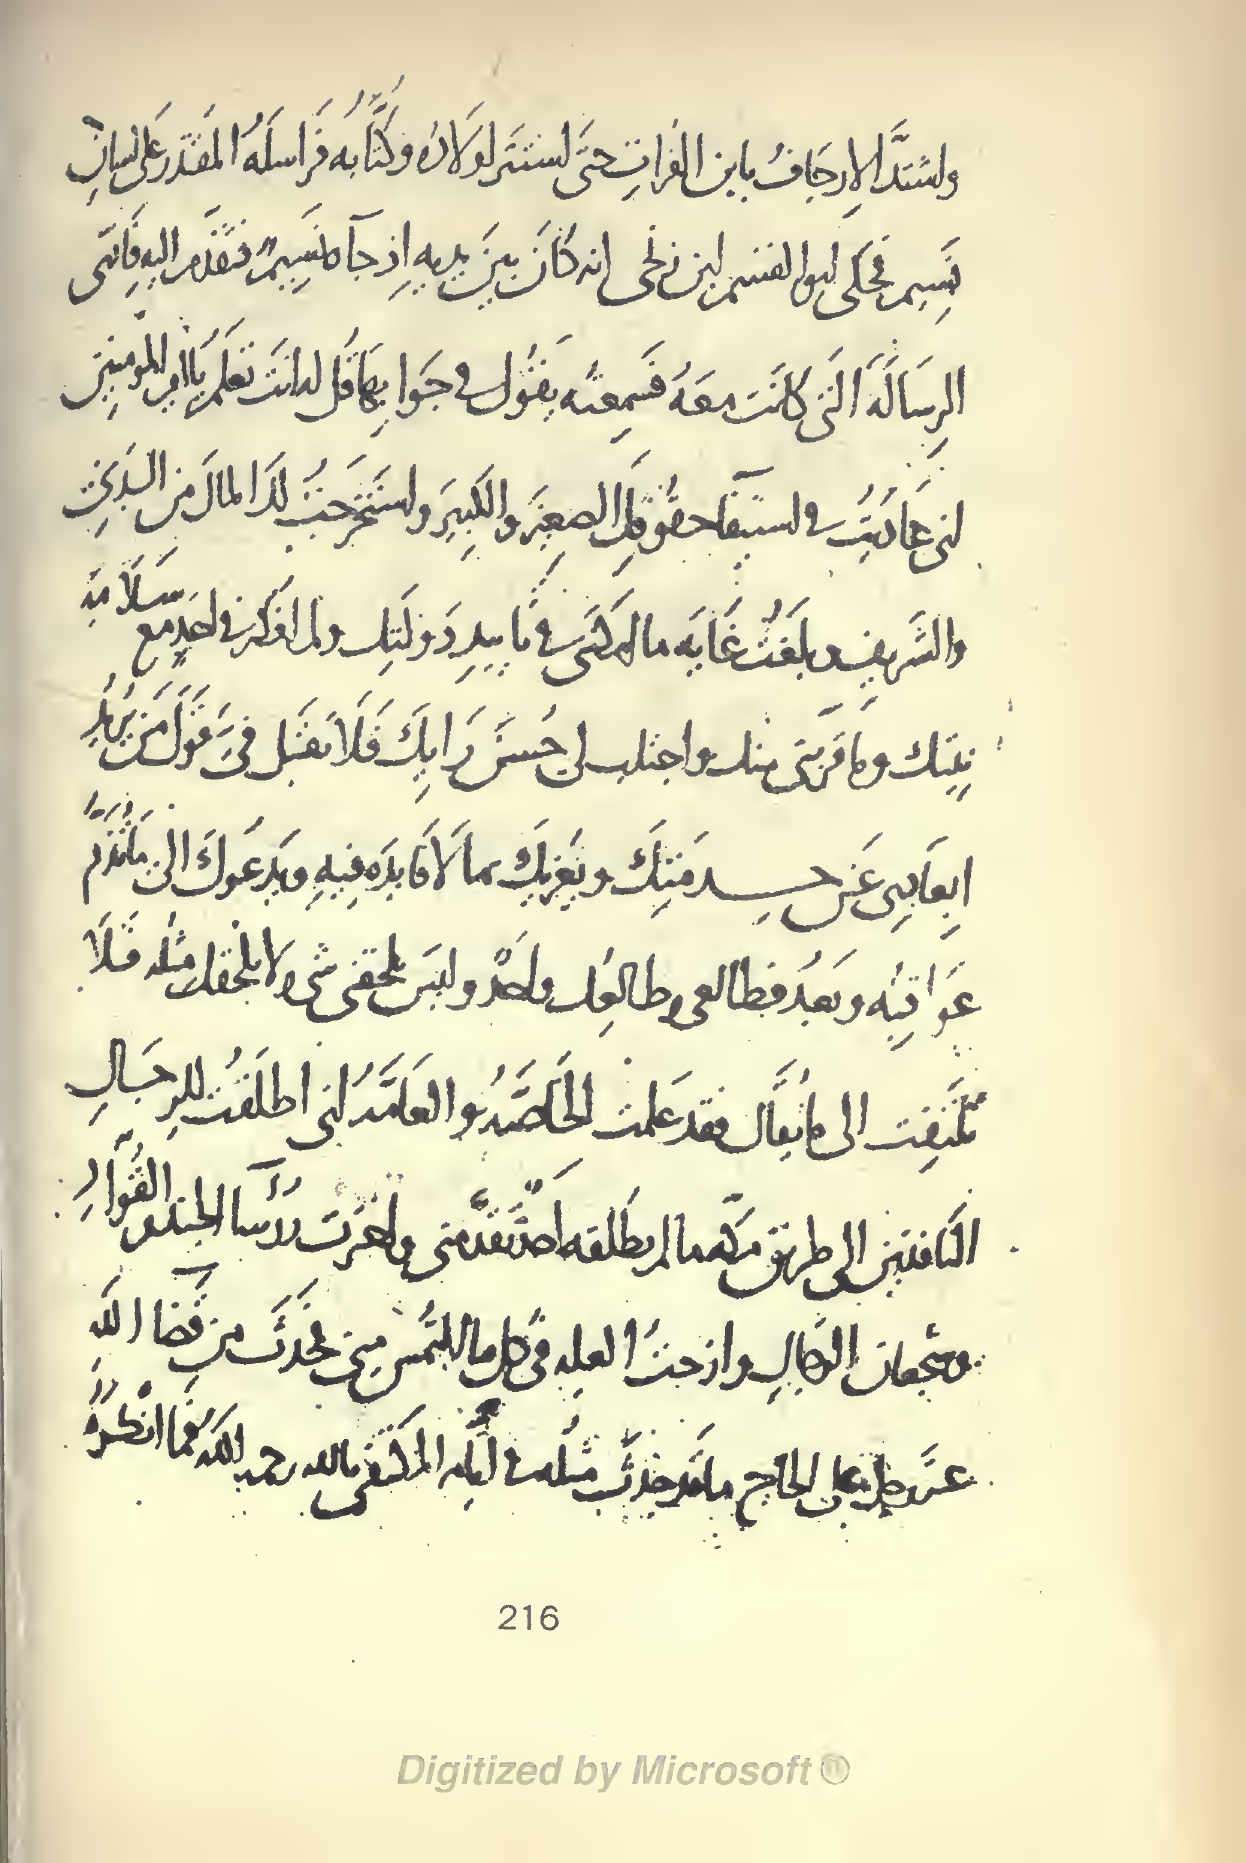 واشتدَّ الإرجَافُ بابن الفُراتِ حتى استتَر اولَادُه وكُتَّابُه فَراسلَهُ المقتدر على لسانِ
نَسِيم فحكى ابو القسم ابن زنجى انه كانَ بينَ يديهِ اِذ جآه نسِيمٌ فتقدَّم اليه فادّى
الرسَالَةَ التى كانَت معَهُ فسَمِعتُه يقُول فى جوابِهَا قُل له انتَ تعلَم يا امير المؤمنين
انى عَادَيتُ فى استيفآ حقوقِك الصغِيَر والكَبِيَر واستخرجتُ لكَ المالَ من الدَنِىّ
والشَريفِ وبلَغتُ غَايَه ما امكنَنى فى تأييدِ دَولَتِك ولم افكر فى احَدٍ مع سَلَامَه
نيتِك وما قرّبنى منك واجتلب لى حُسنَ رَايِكَ فَلَا تقبَل فىَّ قولَ مَن يُريدُ
ابعَادِى عَن خِدمَتِكَ ويُغرِيكَ بما لَا فايدَه فيهِ ويَدعُوكَ الى مَا تُذَمُّ
عَواقِبُه وبَعدُ فطالعى وطالِعُك واحدٌ وليسَ يلحقنى شى ولا يلحقك مثلُه فَلَا
تلتَفِت الى ما يُقَال فقد عَلمت الخَاصَّهُ والعَامَّهُ انى اطلَقتُ للرجَالِ
النافذين الى طريق مكّه ما لم يطلقه احَدٌ تقدَّمنى واخترت رُؤسآ الجند والقُوّادِ
وشجعان الرجالِ وازحتُ العِله فى كلِ ما التُمِسَ مِنى فحَدَثَ من قَضآ اللَه
عزَّ وجل على الحاج ما قد حَدَثَ مثلُه فى ايّام المكتفى بالله رحمه اللَه فما انكرَهُ
216
Digitized by Microsoft ®